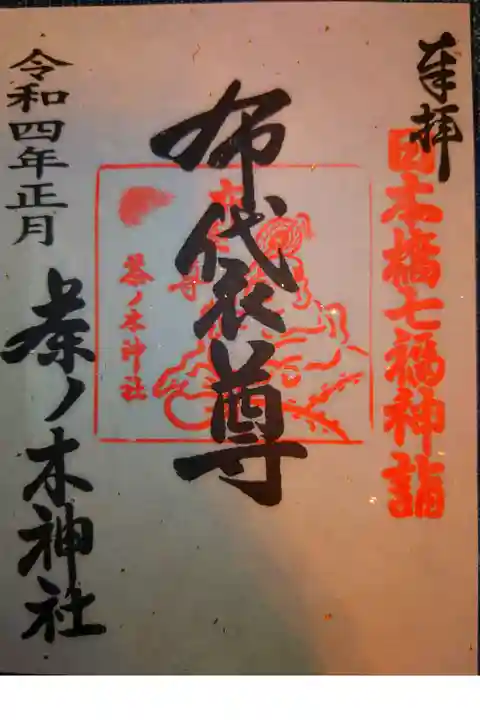 奉拝
日本橋七福神詣
布袋尊
茶ノ木神社
令和四年正月
茶ノ木神社